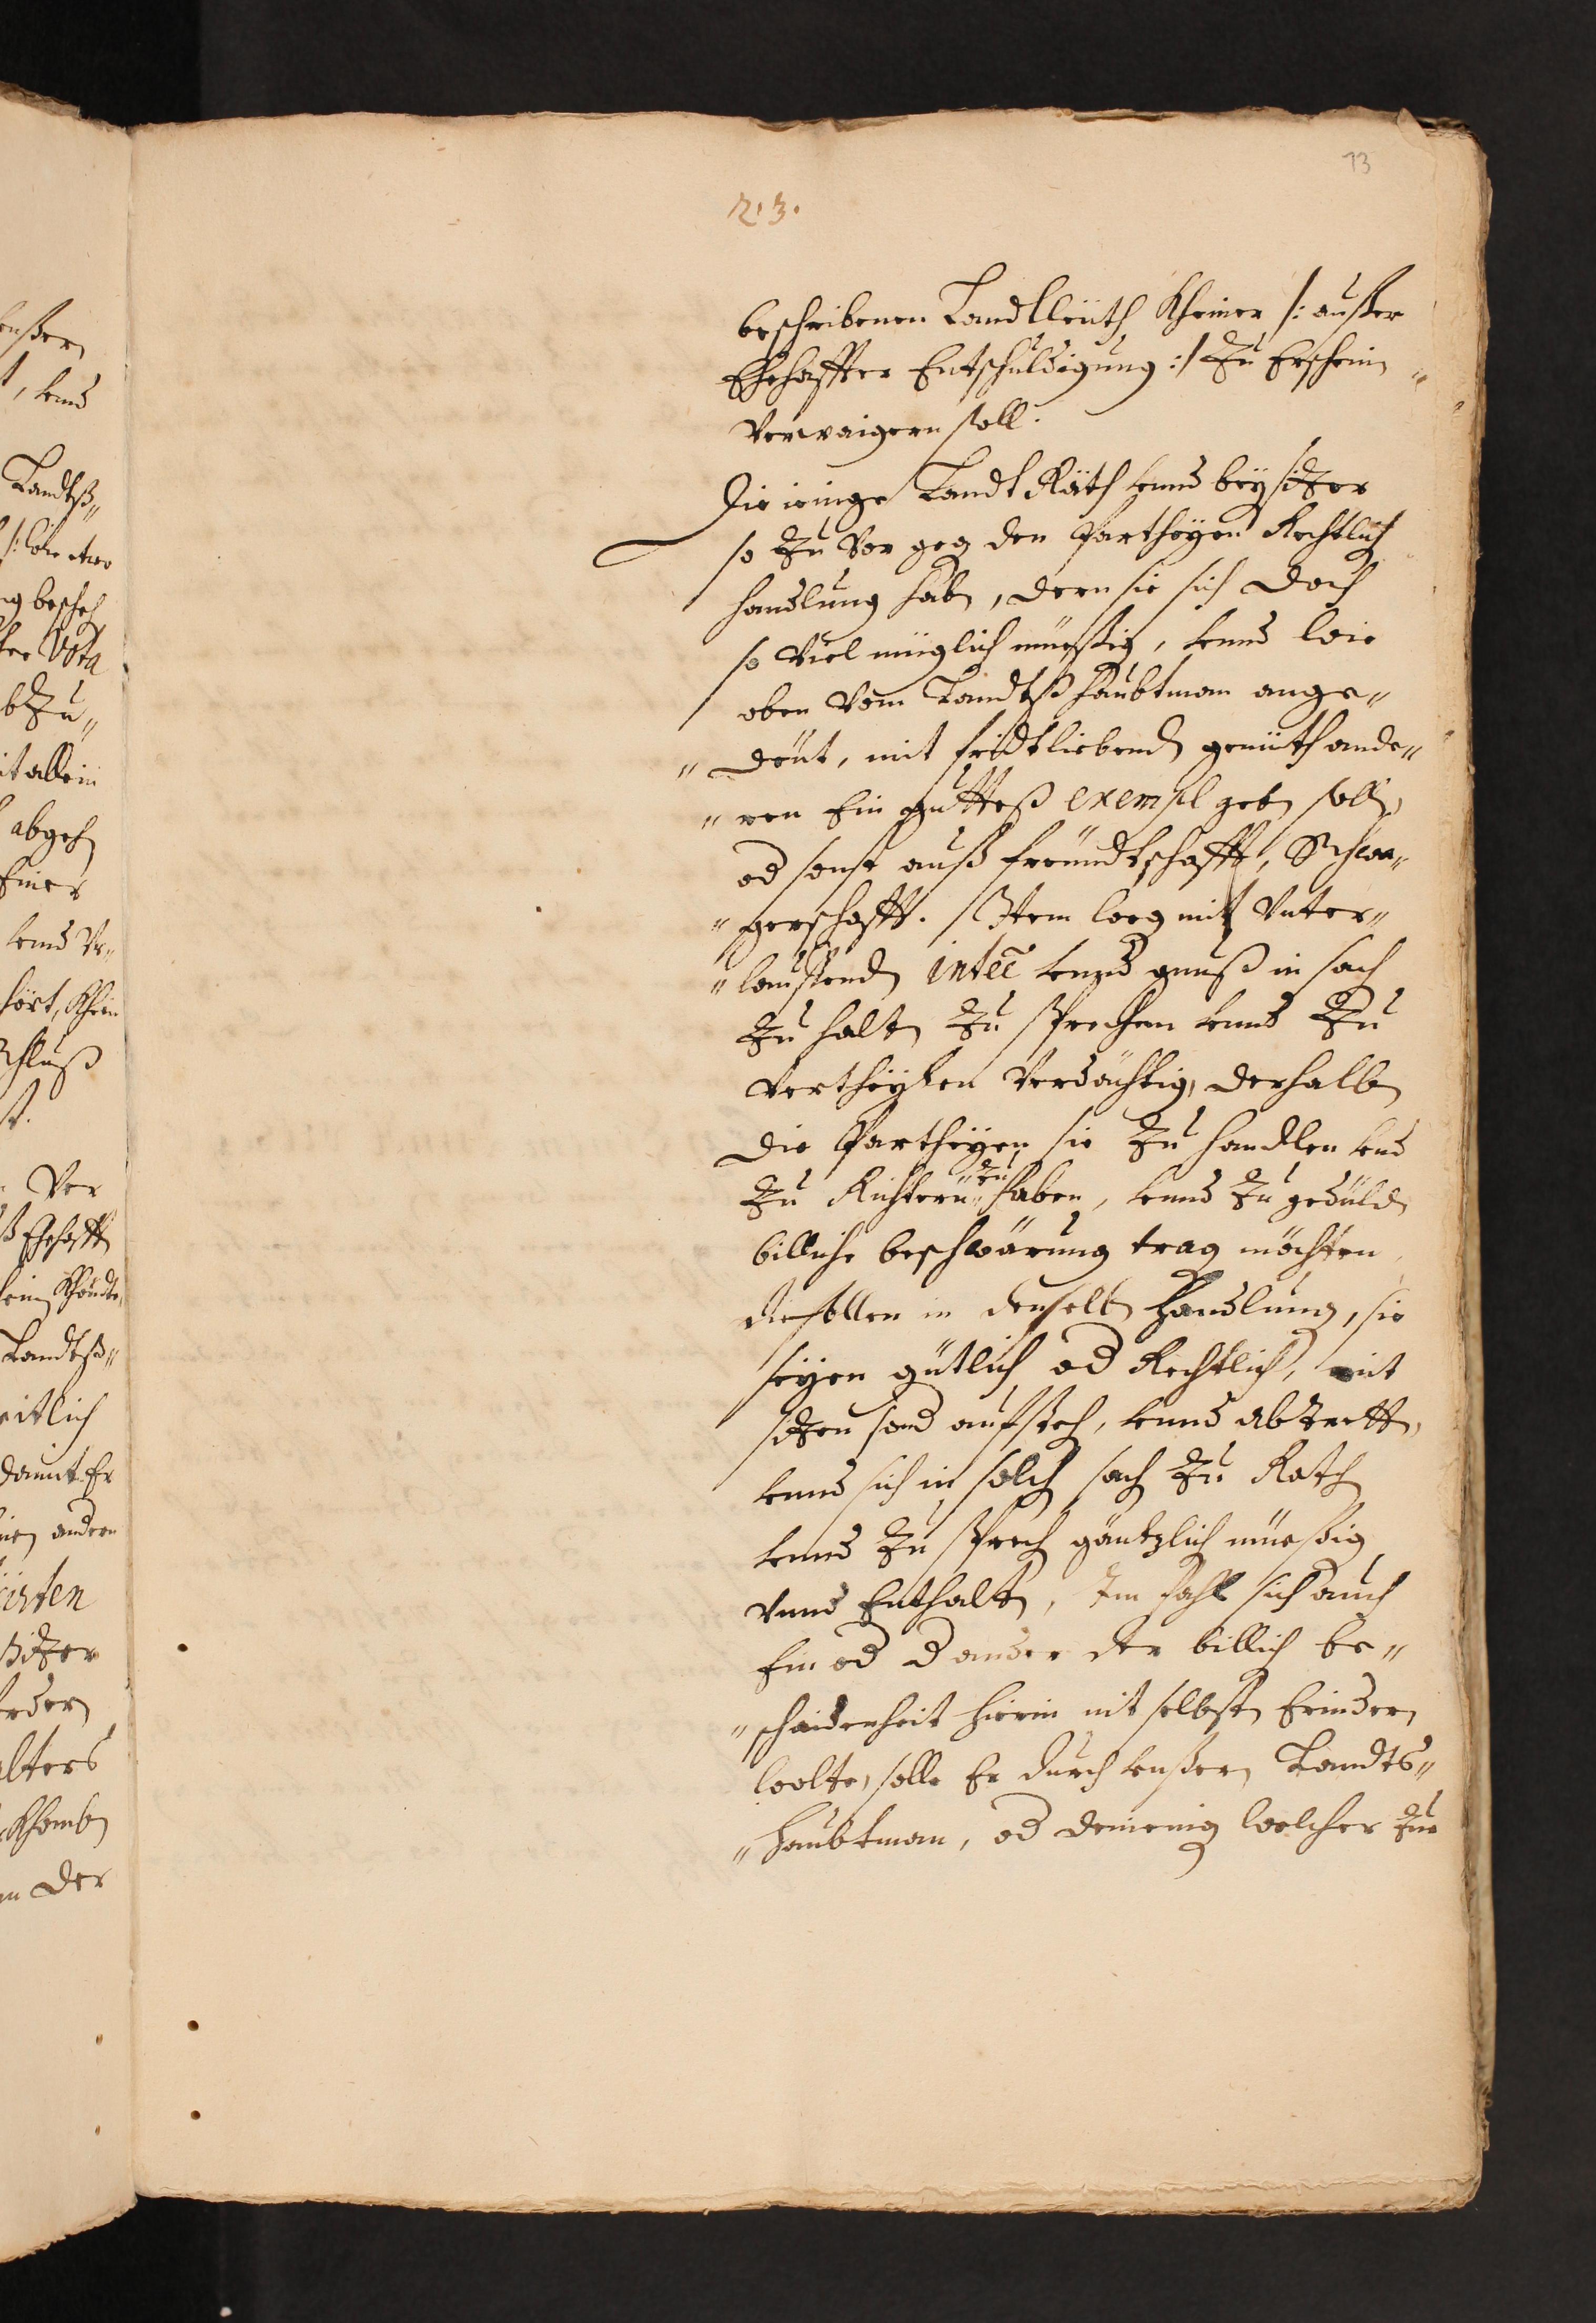 13
2.3.
beschribenen Landtleüth Kheiner /: ausser
Ehehaffter Entschuldigung :/ Zu Erschein
verwaigern soll.
Die ienige Landt Räth vnnd beysitzer
so Zu vor geg den Partheyen Rechtlich
handlung hab, deren sie sich doch
so viel müglich müessig, vnnd wie
oben vom Landtßhaubtman ange„
„deüt, mit fridtliebend gemüth ande„
„ren Ein guttteß exempl geb soll,
od sonst auß freundtschafft, Schwa„
„gerschafft. Item weg mit vnter„
„lauffend vnnd gnuß in sach
Zu halt Zu sprechen vnnd Zu
vertheylen verdächtig, derhalb
die Partheyen sie Zu handlen vnd
Zu Richtern zu haben, vnnd Zu geduld
billiche beschwärung trag möchten
die sollen in denselb handlung, sie
seyen gütlich od Rechtlich, nit
sitzen sond aufsteh, vnnd abtrett,
vnnd sich in solch sach Zu Rath
vnnd Zu sprech gäntzlich müessig
vnnd Enthalt, Im fahl sich auch
Ein od d ander der billich be„
„schaidenheit hierin nit selbst Erindern
wolte, solle Er durch vnsern Landts„
„haubtman, od deienig welcher Zur